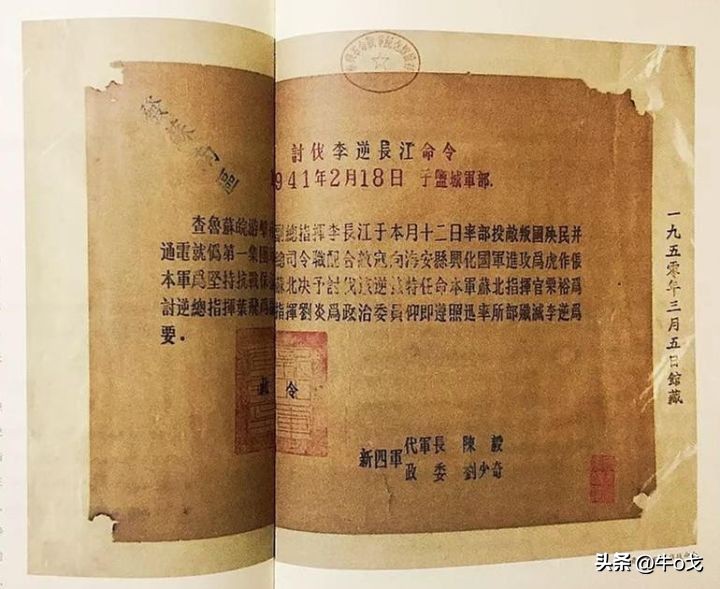 討伐李逆長江命令
941年2月18日 于鹽城軍部.
查魯蘇皖游擊副總指揮李長江于本月十二日率部投敵叛國殃民并
通電就僞第一集團總司令職配合敵寇向海安縣興化國軍進攻爲虎作倀
本軍爲堅持抗戰保蘇北决予討伐該逆茲特任命本軍蘇北指揮官粟裕爲
討逆總指揮葉飛爲指揮劉炎爲政治委員仰即遵照迅率所部殲滅李逆爲
要.
令
新四軍 代軍長 陳毅
政委 劉少奇
一九五零年三月五日館藏
头条 @牛o戈